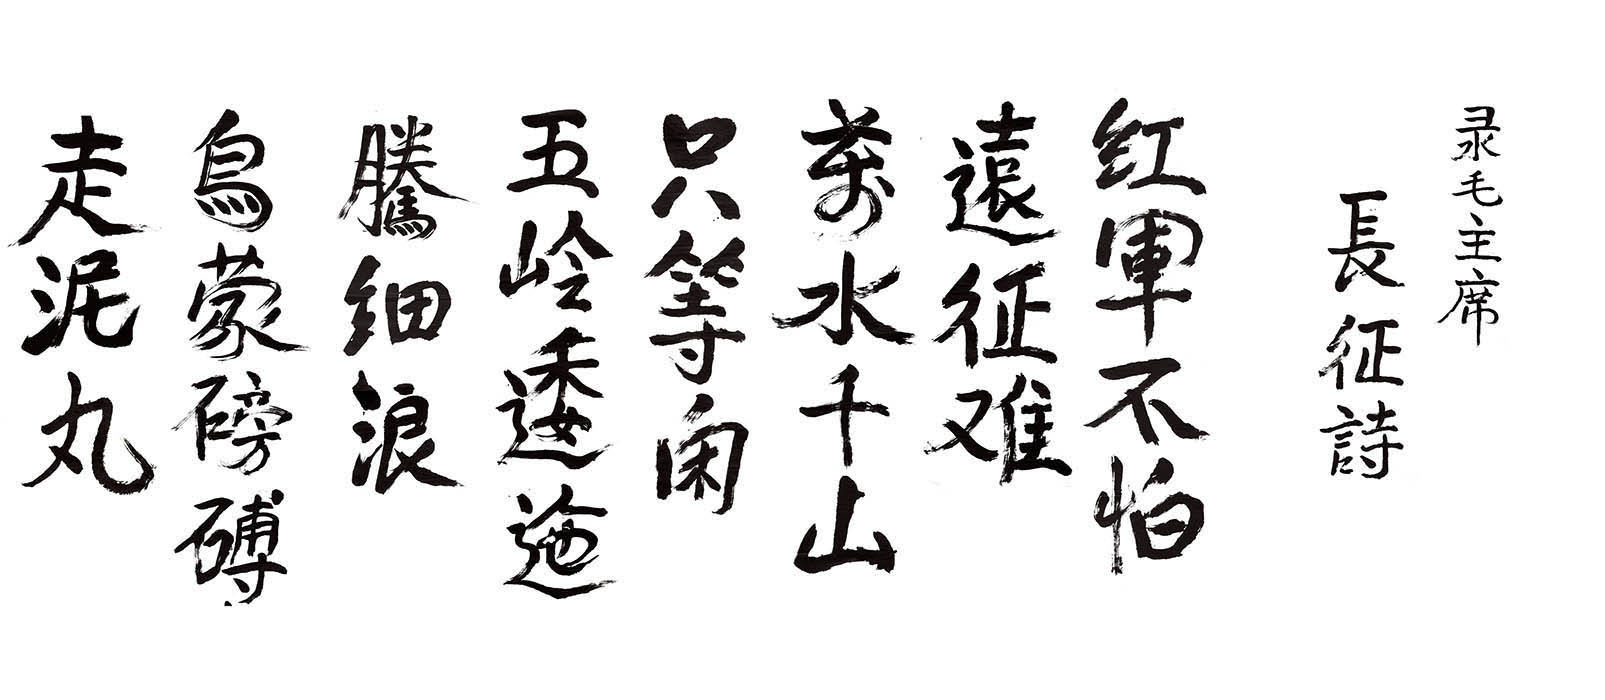 录毛主席
長征詩
红軍不怕
遠征难
萬水千山
只等闲
五岭逶迤
騰细浪
烏蒙磅礴
走泥丸